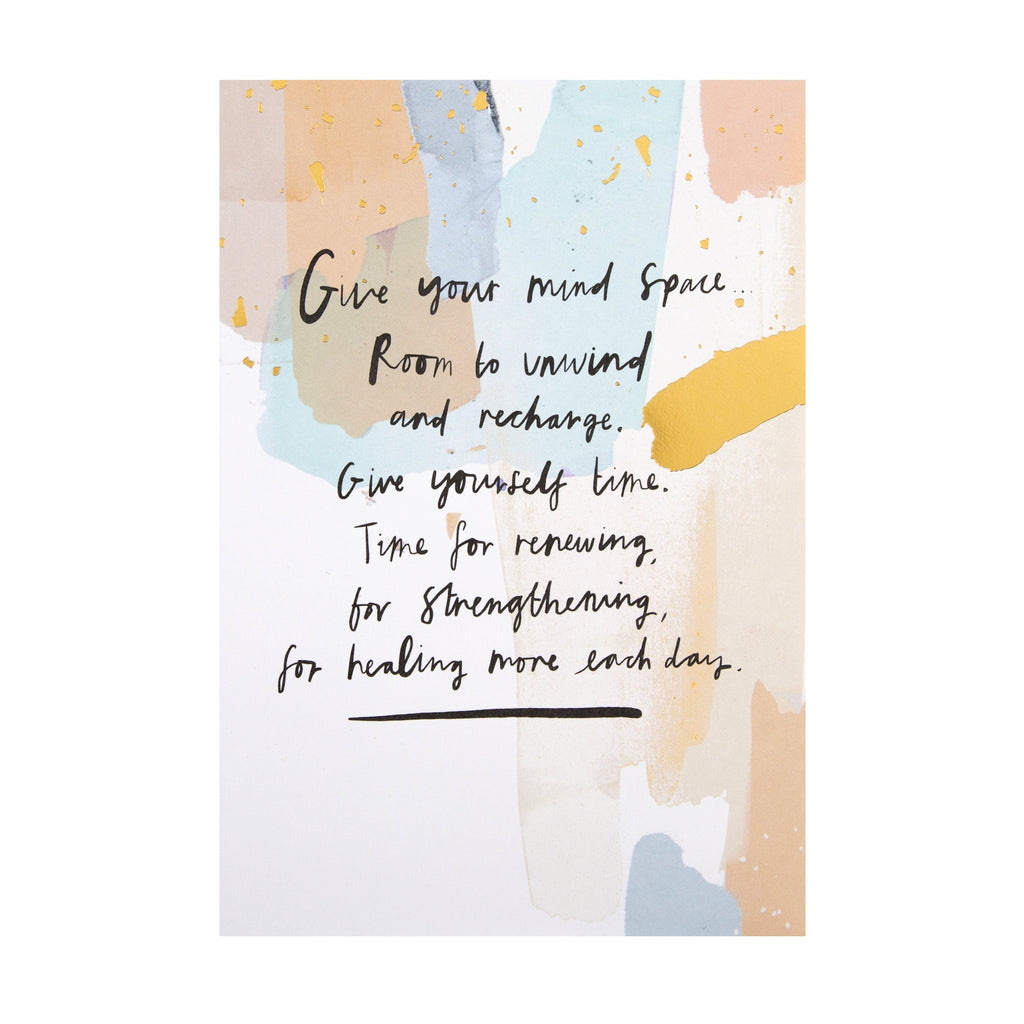 Give your mind space...
Room to unwind
and recharge.
Give yourself time.
Time for renewing,
for strengthening,
for healing more each day.